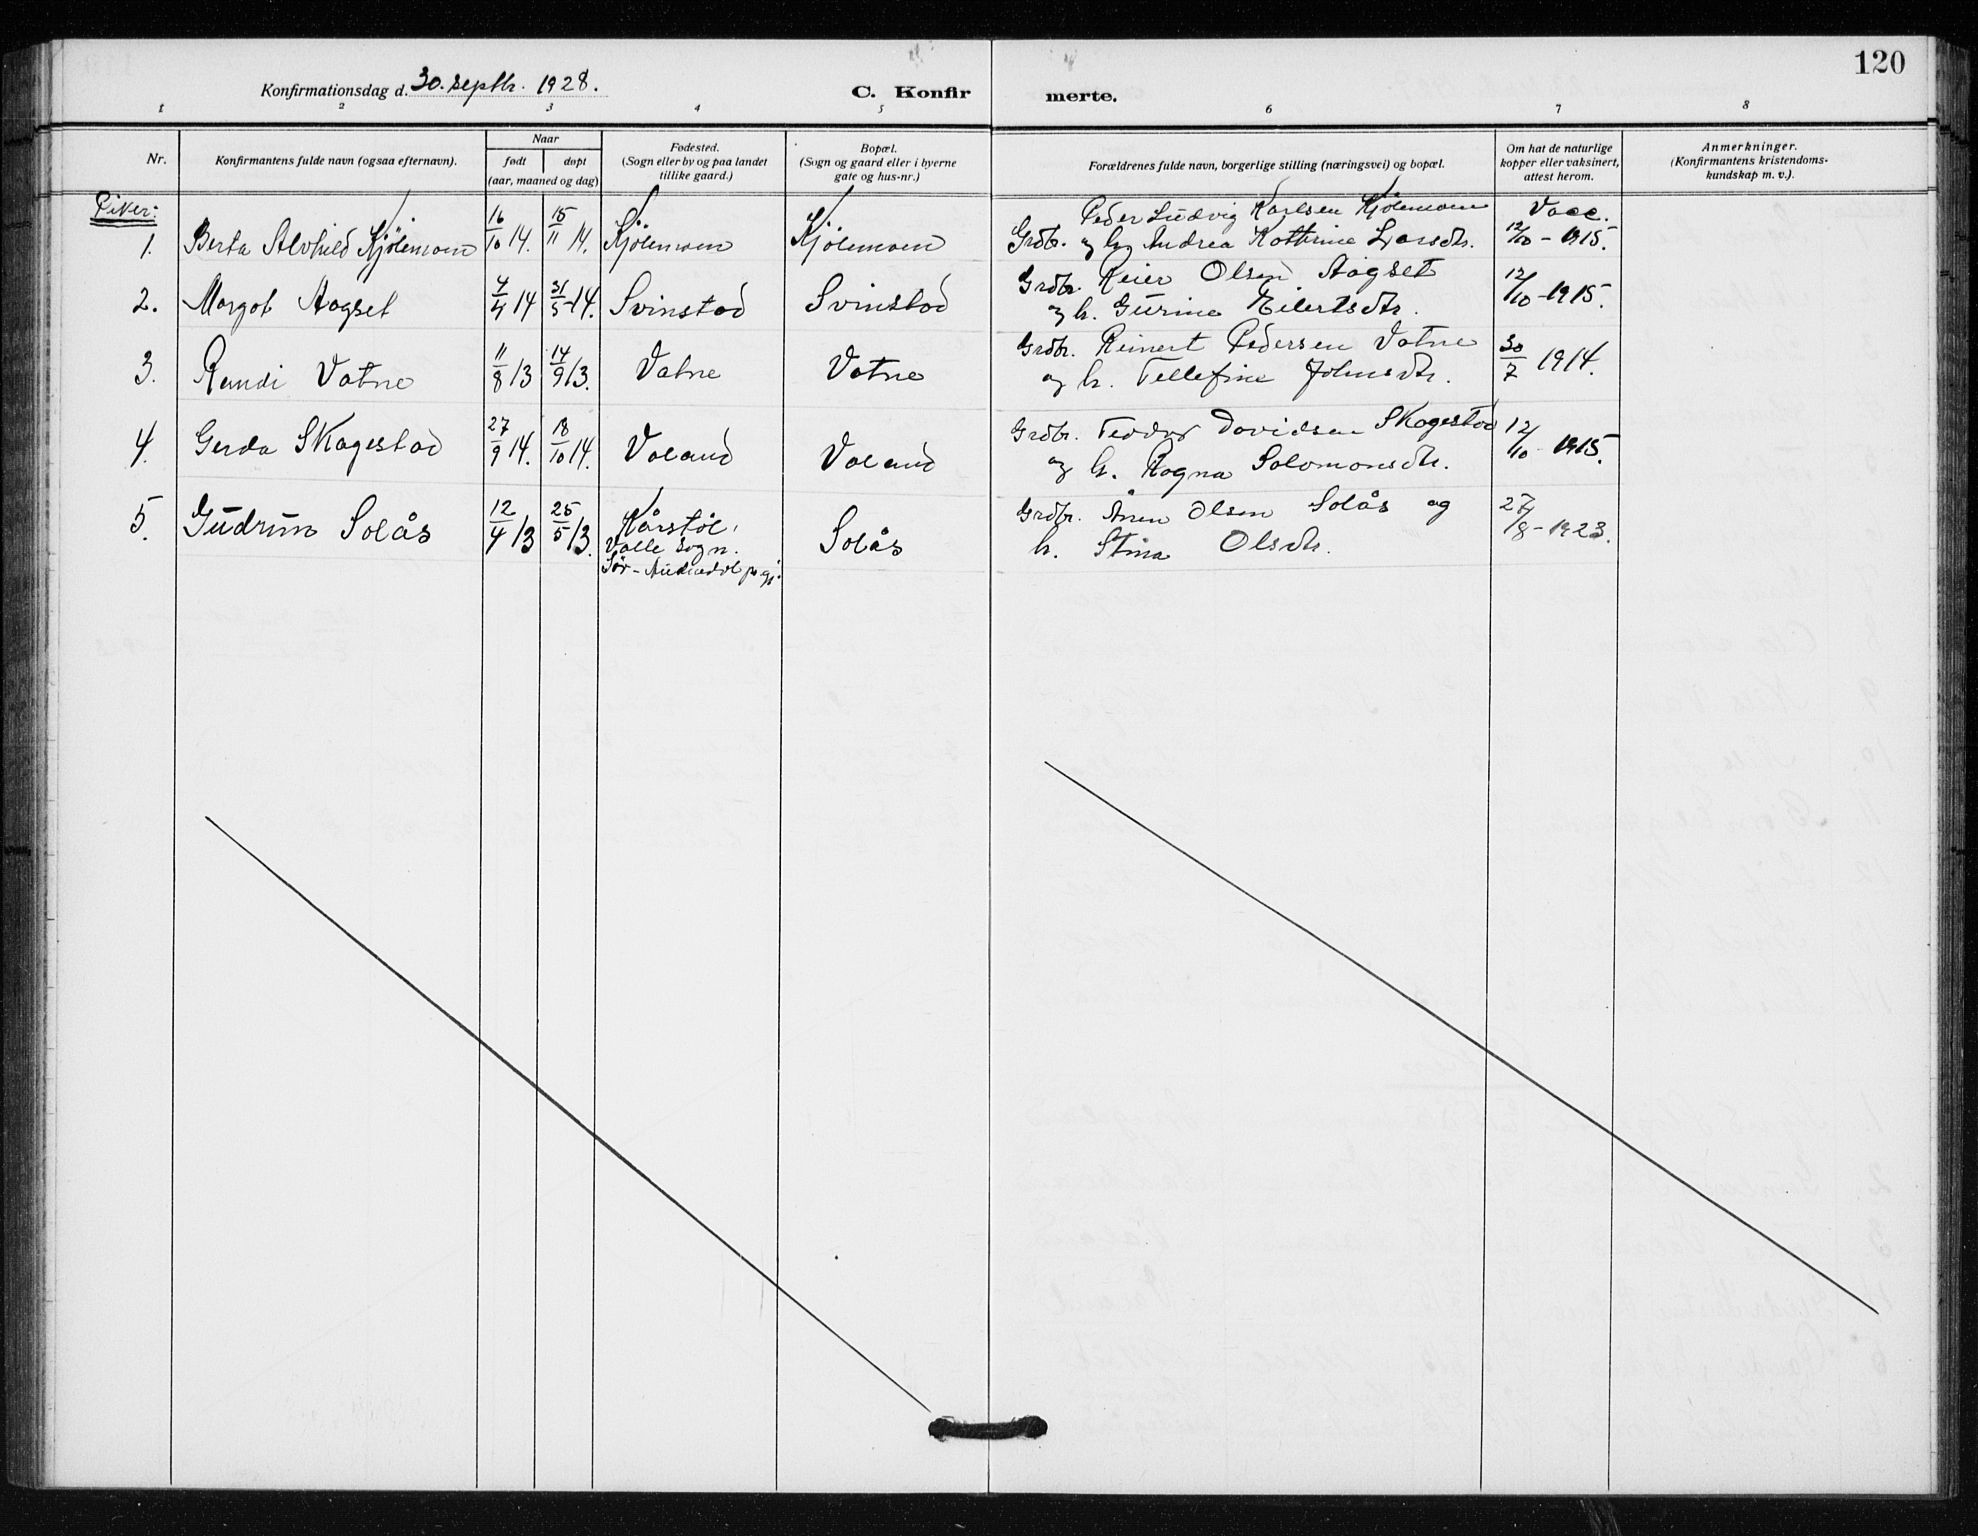 120
Konfirmationsdag d. 30. septbr. 1928.
C. Konfirmerte.
1 2 3 4 5 6 7 8
Nr.
Konfirmantens fulde navn (ogsaa efternavn).
Naar
født
døpt
(aar, maaned og dag)
Fødested.
(Sogn eller by og paa landet
tillike gaard.)
Bopæl.
(Sogn og gaard eller i byerne
gate og hus-nr.)
Forældrenes fulde navn, borgerlige stilling (næringsvei) og bopæl.
Om hat de naturlige
kopper eller vaksinert,
attest herom.
Anmerkninger.
(Konfirmantens kristendoms-
kundskap m. v.).
Piker:
1. Berta Alvhild Kjölemoen 16/10 14. 15/11 14. Kjölemoen Kjölemoen
Peder Ludvig Karlsen Kjölemoen Vacc.
Grdbr. og h. Andrea Kathrine Larsdtr. 12/10 - 1915.
2. Margot Aagset 7/4 14 31/5 - 14. Svinstad Svinstad
Grdbr. Reier Olsen Aagset 12/10 - 1915.
og h. Gurine Eilertsdtr.
3. Randi Vatne 11/8 13 14/9 13. Vatne Vatne
Grdbr. Reinert Pedersen Vatne 30/7 1914.
og h. Tellefine Johnsdtr.
4. Gerda Skagestad 27/9 14. 18/10 14. Valand Valand
Grdbr. Teodor Davidsen Skagestad 12/10 - 1915.
og h. Ragna Salomonsdtr.
5. Gudrun Solås 12/4 13 25/5 13. Kårstöl, Solås
Valle sogn.
Sör-Audnedal pr.gj.
Grdbr. Ånen Olsen Solås og 27/8 - 1923.
h. Stina Olsdtr.